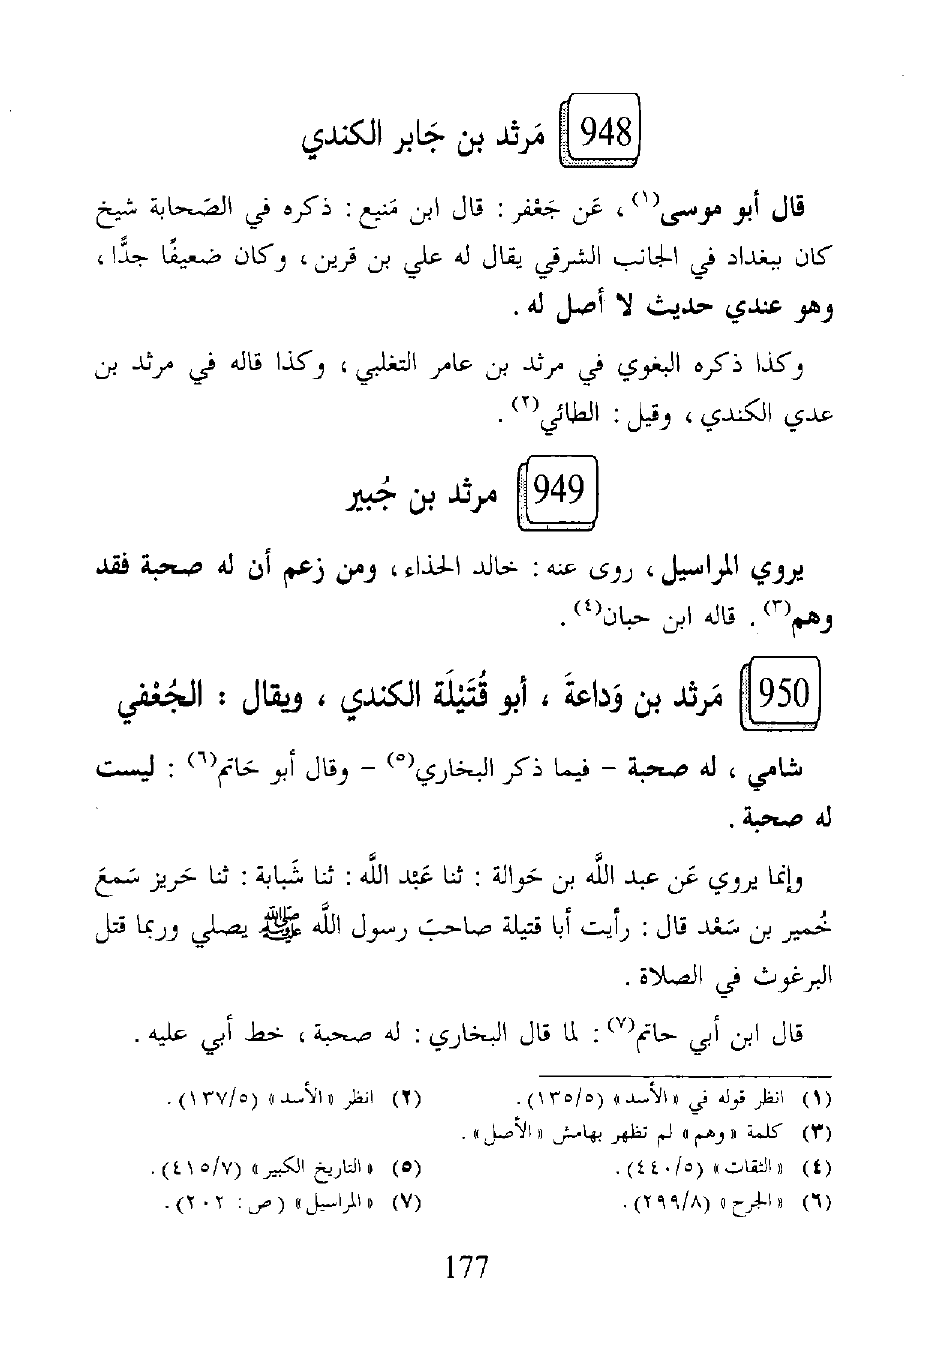 948 مَرثد بن جَابر الكندي
قال أبو موسى(١) ، عَن جَعْفر : قال ابن مَنيع : ذكره في الصَحابة شيخ
كان ببغداد في الجانب الشرقي يقال له علي بن قرين ، وكان ضعيفًا جدًّا ،
وهو عندي حديث لا أصل له .
وكذا ذكره البغوي في مرثد بن عامر التغلبي ، وكذا قاله في مرثد بن
عدي الكندي ، وقيل : الطائي(٢) .
949 مرثد بن جُبير
يروي المراسيل ، روى عنه : خالد الحذاء ، ومن زعم أن له صحبة فقد
وهم(٣) . قاله ابن حبان(٤) .
950 مَرثد بن وَداعةَ ، أبو قُتَيْلَة الكندي ، ويقال : الجُعْفي
شامي ، له صحبة - فيما ذكر البخاري(٥) - وقال أبو حَاتم(٦) : ليست
له صحبة .
وإنما يروي عَن عبد اللَّه بن حَوالة : ثنا عَبْد اللَّه : ثنا شَبابة : ثنا حَريز سَمعَ
خُمير بن سَعْد قال : رأيت أبا قتيلة صاحبَ رسول اللَّه ﷺ يصلي وربما قتل
البرغوث في الصلاة .
قال ابن أبي حاتم(٧) : لما قال البخاري : له صحبة ، خط أبي عليه .
(١) انظر قوله في «الأسد» (١٣٥/٥) . (٢) انظر «الأسد» (١٣٧/٥) .
(٣) كلمة «وهم» لم تظهر بهامش «الأصل» .
(٤) «الثقات» (٤٤٠/٥) . (٥) «التاريخ الكبير» (٤١٥/٧) .
(٦) «الجرح» (٢٩٩/٨) . (٧) «المراسيل» (ص: ٢٠٢) .
177